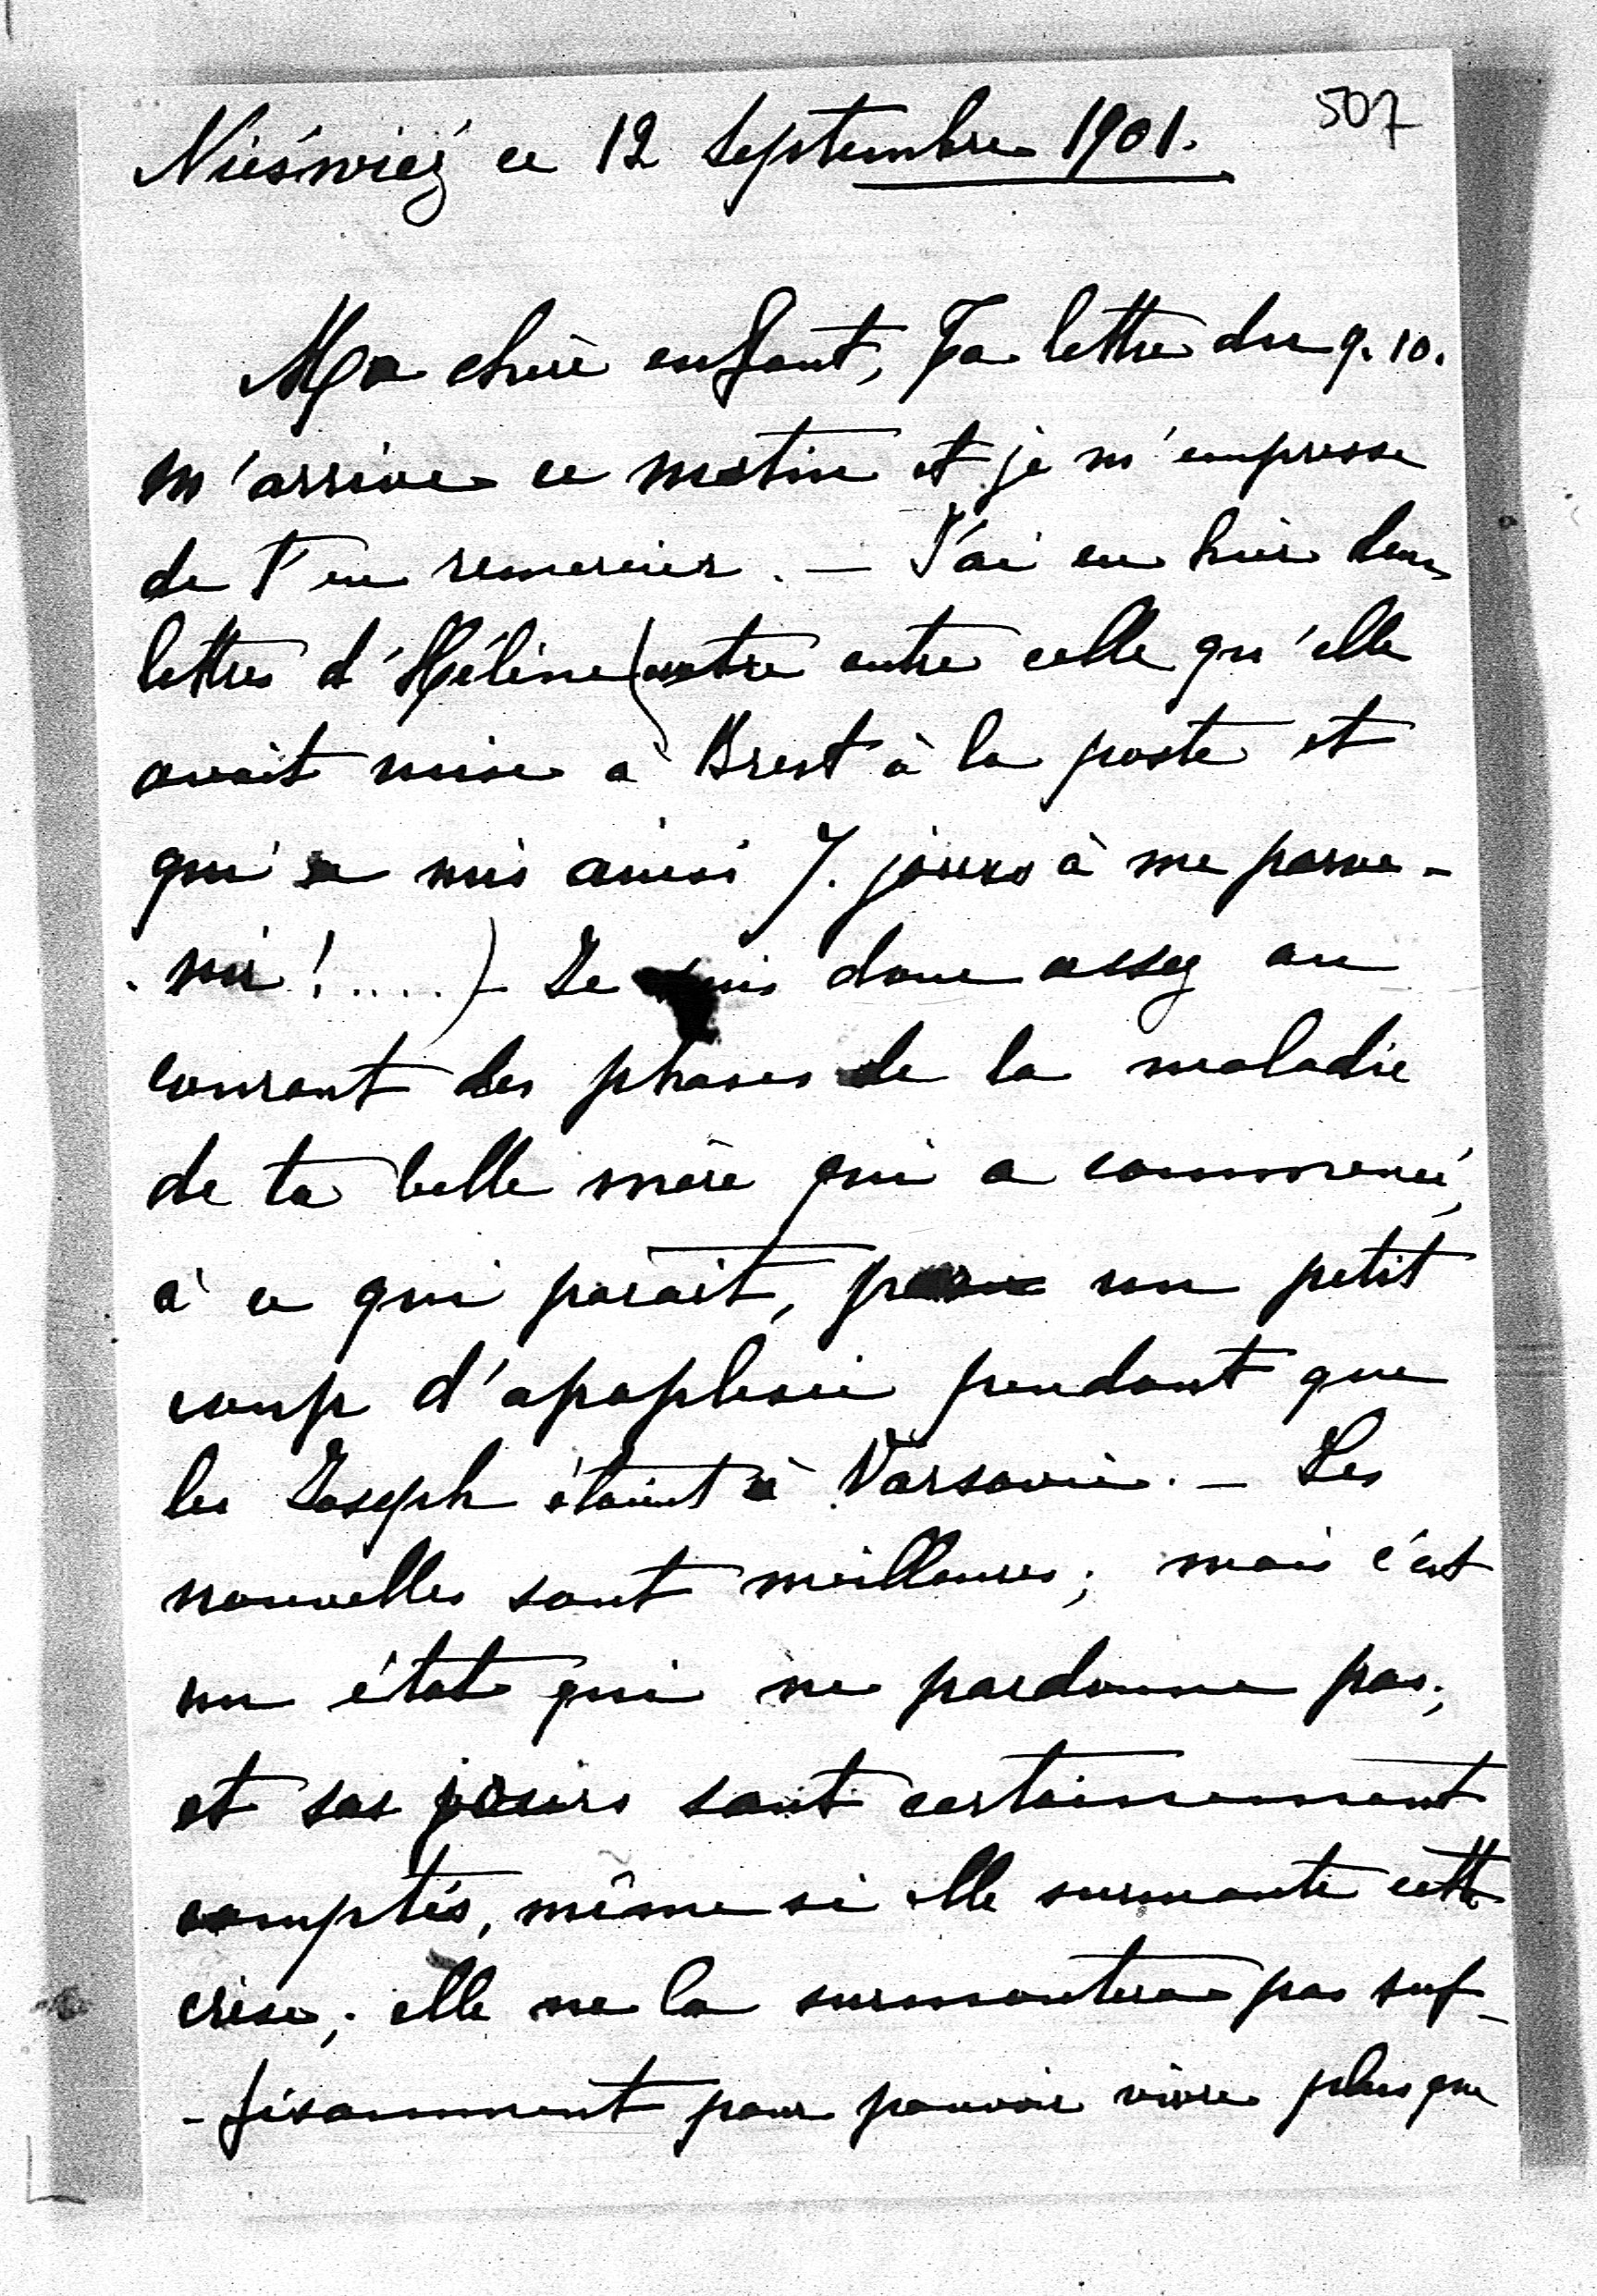 507
Nieśwież ce 12 Septembre 1901.
Ma chère enfant, Ta lettre du 9. 10.
m'arrive ce matin et je m'empresse
de t'en remercier. — J'ai eu hier deux
lettres d'Hélène (outre entre celle qu'elle
avait mise à Brest à la poste et
qui a mis ainsi 7. jours à me parve-
-nir!....) — Je suis donc assez au
courant des phases de la maladie
de ta belle mère qui a commencé,
à ce qui paraît, par un petit
coup d'apoplexie pendant que
les Joseph étaient à Varsovie. — Les
nouvelles sont meilleures; mais c'est
un état qui ne pardonne pas;
et ses jours sont certainement
comptés, même si elle surmonte cette
crise; elle ne la surmontera pas suf-
-fisamment pour pouvoir vivre plus que